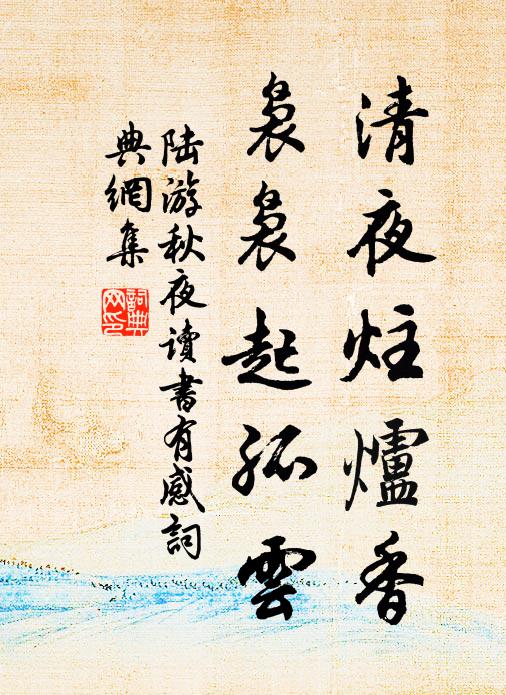 清夜炷爐香
裊裊起孤雲
陸游秋夜讀書有感詞
典網集
詞典網印